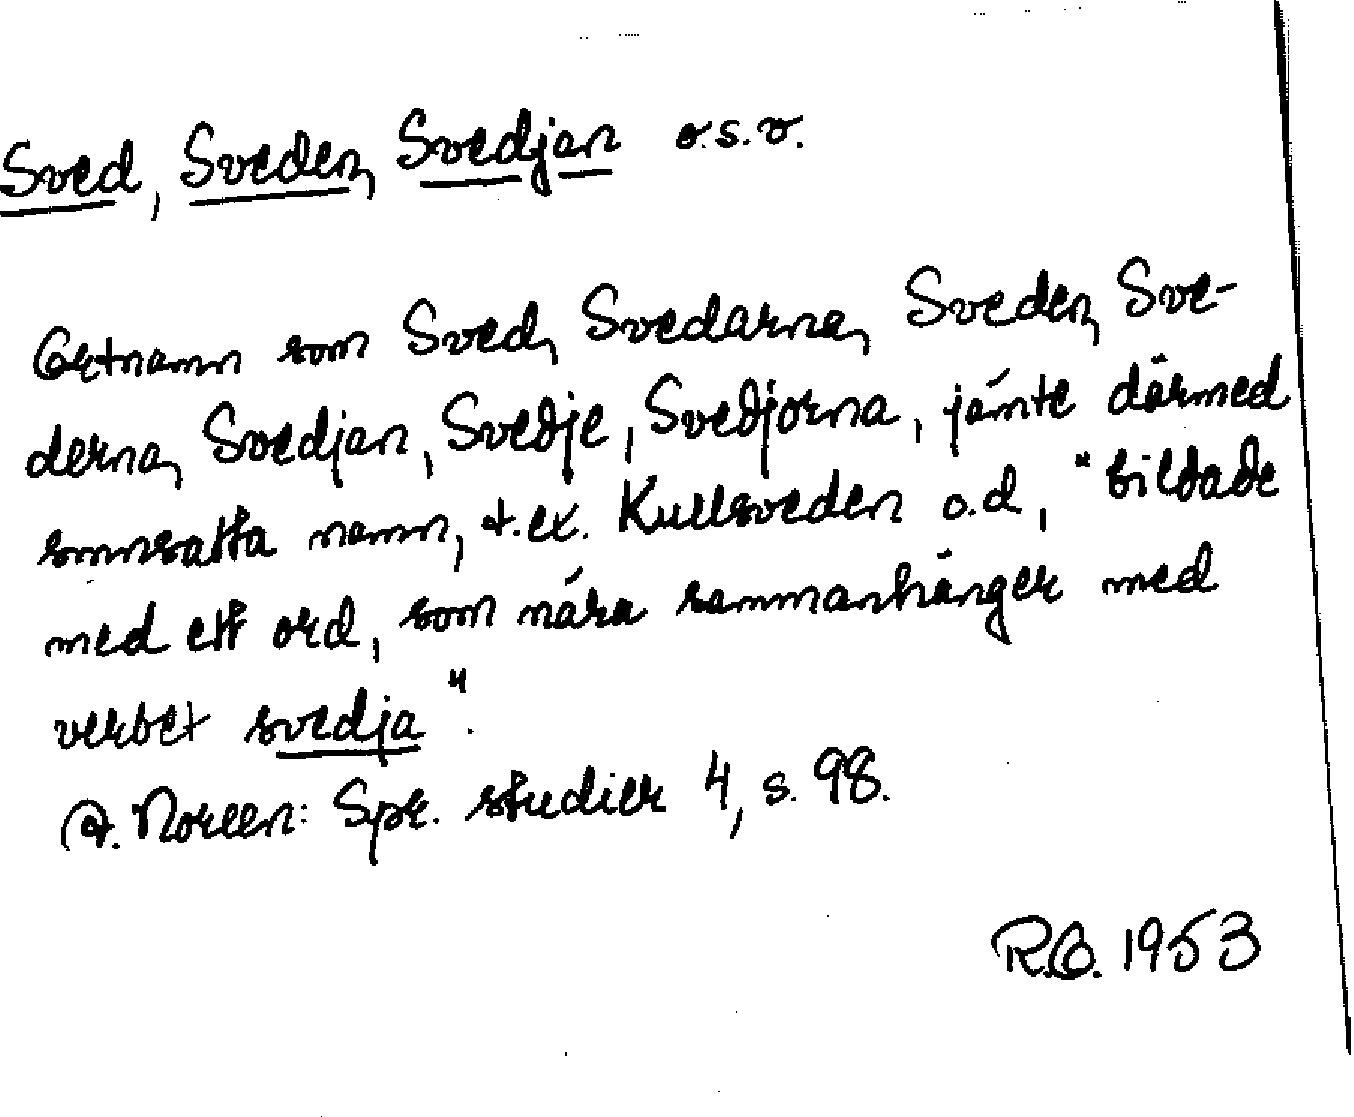 Sved, Sveden, Svedjan o.s.v.
Ortnamn som Sved, Svedarna, Sveden, Sve-
derna, Svedjan, Svedje, Svedjorna, jämte därmed
smnsatta namn, t.ex. Kullsveden o.d., "bildade
med ett ord, som nära sammanhänger med
verbet svedja".
A. Noreen: Spr. studier 4, s. 98.
R.O. 1953